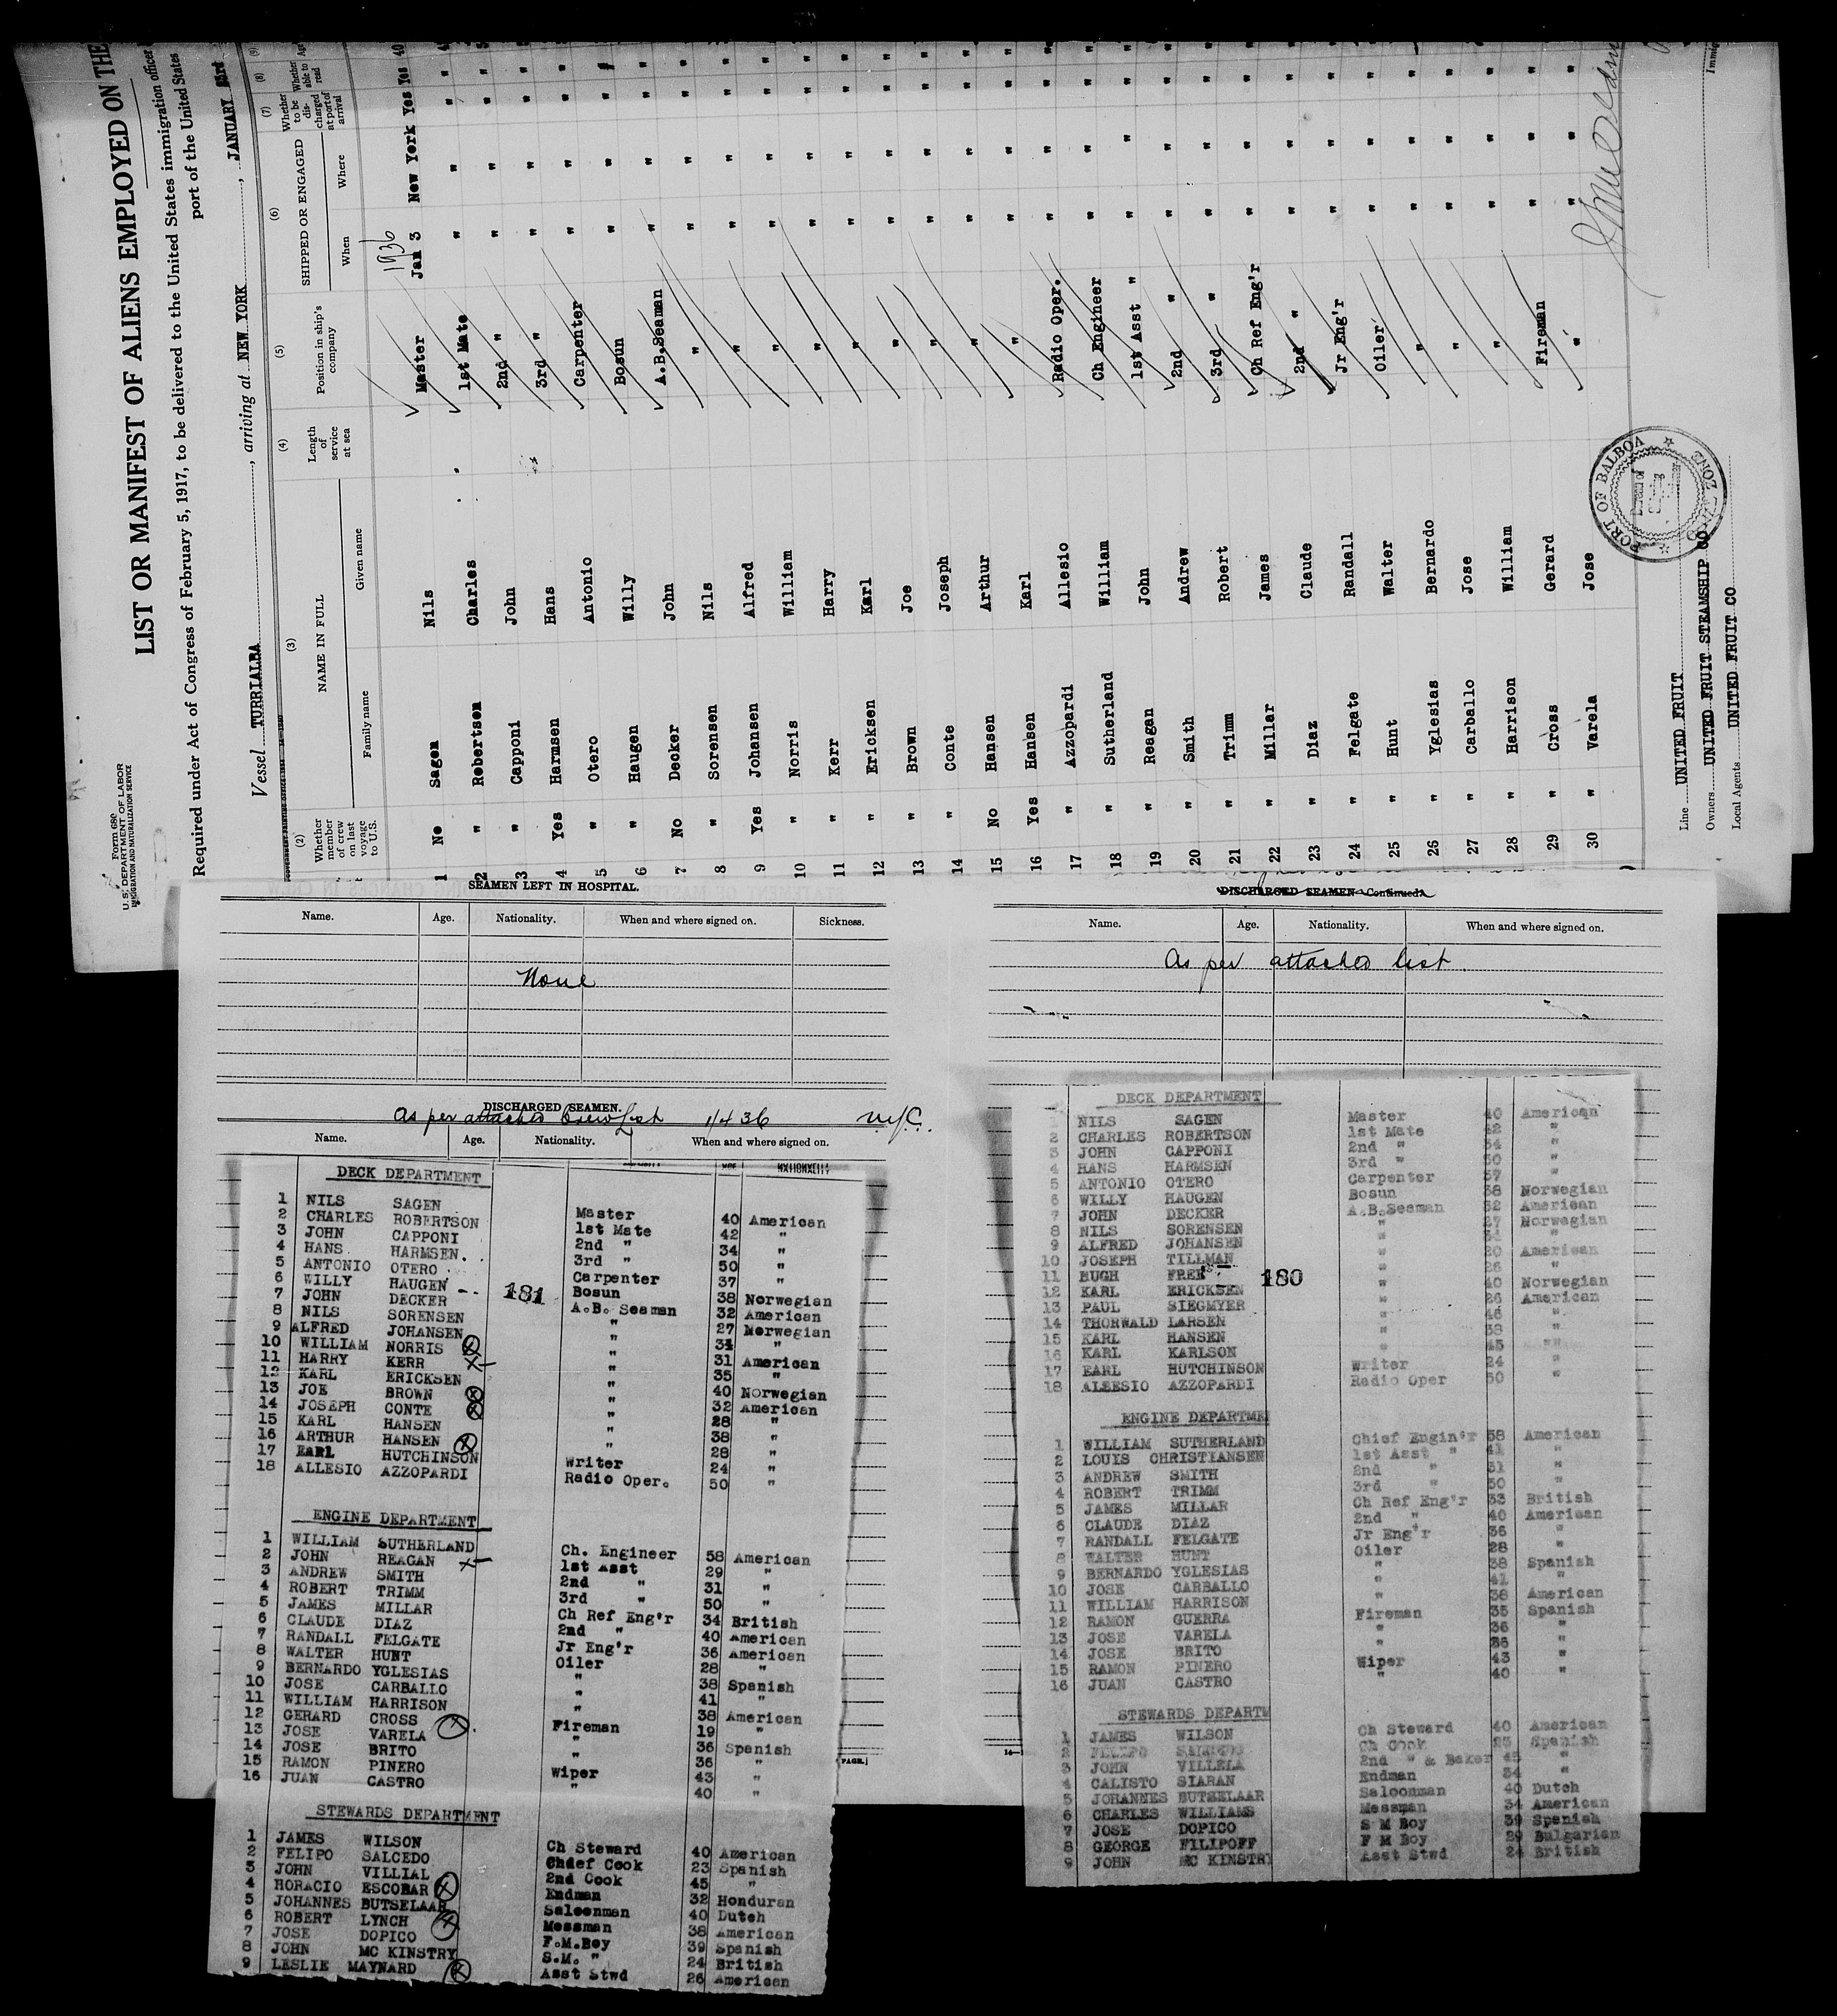 Form 680
U. S. DEPARTMENT OF LABOR
IMMIGRATION AND NATURALIZATION SERVICE
LIST OR MANIFEST OF ALIENS EMPLOYED ON THE
Required under Act of Congress of February 5, 1917, to be delivered to the United States immigration officer
port of the United States
Vessel TURRIALBA, arriving at NEW YORK, JANUARY
(2) (3) (4) (5) (6) (7) (8) (9)
Whether member of crew on last voyage to U.S. NAME IN FULL Length of service at sea Position in ship's company SHIPPED OR ENGAGED Whether to be discharged at port of arrival Whether able to read Age
Family name Given name When Where
1936
1 No Sagen Nils Master Jan 3 New York Yes Yes 40
2 " Robertson Charles 1st Mate " " " "
3 " Capponi John 2nd " " " " "
4 Yes Harmsen Hans 3rd " " " " "
5 " Otero Antonio Carpenter " " " "
6 " Haugen Willy Bosun " " " "
7 No Decker John A.B.Seaman " " " "
8 " Sorensen Nils " " " " "
9 Yes Johansen Alfred " " " " "
10 " Norris William " " " " "
11 " Kerr Harry " " " " "
12 " Ericksen Karl " " " " "
13 " Brown Joe " " " " "
14 " Conte Joseph " " " " "
15 No Hansen Arthur " " " " "
16 Yes Hansen Karl " " " " "
17 " Azzopardi Allesio Radio Oper. " " " "
18 " Sutherland William Ch Engineer " " " "
19 " Reagan John 1st Asst " " " " "
20 " Smith Andrew 2nd " " " " "
21 " Trimm Robert 3rd " " " " "
22 " Millar James Ch Ref Eng'r " " " "
23 " Diaz Claude 2nd " " " " "
24 " Felgate Randall Jr Eng'r " " " "
25 " Hunt Walter Oiler " " " "
26 " Yglesias Bernardo " " " " "
27 " Carballo Jose " " " " "
28 " Harrison William " " " " "
29 " Cross Gerard Fireman " " " "
30 " Varela Jose " " " " "
PORT OF BALBOA
CANAL ZONE
Line UNITED FRUIT
Owners UNITED FRUIT STEAMSHIP CO
Local Agents UNITED FRUIT CO
Immig
SEAMEN LEFT IN HOSPITAL.
Name. Age. Nationality. When and where signed on. Sickness.
None
DISCHARGED SEAMEN.
As per attached Crew List 1/4 36
Name. Age. Nationality. When and where signed on.
DECK DEPARTMENT
1 NILS SAGEN Master 40 American
2 CHARLES ROBERTSON 1st Mate 42 "
3 JOHN CAPPONI 2nd " 34 "
4 HANS HARMSEN 3rd " 50 "
5 ANTONIO OTERO Carpenter 37 "
6 WILLY HAUGEN Bosun 38 Norwegian
7 JOHN DECKER A.B. Seaman 32 American
8 NILS SORENSEN " 27 Norwegian
9 ALFRED JOHANSEN " 34 "
10 WILLIAM NORRIS " 31 American
11 HARRY KERR " 35 "
12 KARL ERICKSEN " 40 Norwegian
13 JOE BROWN " 32 American
14 JOSEPH CONTE " 28 "
15 KARL HANSEN " 38 "
16 ARTHUR HANSEN " 28 "
17 EARL HUTCHINSON Writer 24 "
18 ALLESIO AZZOPARDI Radio Oper. 50 "
181
ENGINE DEPARTMENT
1 WILLIAM SUTHERLAND Ch. Engineer 58 American
2 JOHN REAGAN 1st Asst 29 "
3 ANDREW SMITH 2nd " 31 "
4 ROBERT TRIMM 3rd " 50 "
5 JAMES MILLAR Ch Ref Eng'r 34 British
6 CLAUDE DIAZ 2nd " 40 American
7 RANDALL FELGATE Jr Eng'r 36 American
8 WALTER HUNT Oiler 28 "
9 BERNARDO YGLESIAS " 38 Spanish
10 JOSE CARBALLO " 41 "
11 WILLIAM HARRISON " 38 American
12 GERARD CROSS Fireman 19 "
13 JOSE VARELA " 36 Spanish
14 JOSE BRITO " 36 "
15 RAMON PINERO Wiper 43 "
16 JUAN CASTRO " 40 "
STEWARDS DEPARTMENT
1 JAMES WILSON Ch Steward 40 American
2 FELIPO SALCEDO Chief Cook 23 Spanish
3 JOHN VILLIAL 2nd Cook 45 "
4 HORACIO ESCOBAR Endman 32 Honduran
5 JOHANNES BUTSELAAR Saloonman 40 Dutch
6 ROBERT LYNCH Messman 38 American
7 JOSE DOPICO F.M.Boy 39 Spanish
8 JOHN MC KINSTRY S.M. " 24 British
9 LESLIE MAYNARD Asst Stwd 26 American
[PAGE.]
DISCHARGED SEAMEN—Continued.
Name. Age. Nationality. When and where signed on.
As per attached list
DECK DEPARTMENT
1 NILS SAGEN Master 40 American
2 CHARLES ROBERTSON 1st Mate 42 "
3 JOHN CAPPONI 2nd " 34 "
4 HANS HARMSEN 3rd " 50 "
5 ANTONIO OTERO Carpenter 37 "
6 WILLY HAUGEN Bosun 38 Norwegian
7 JOHN DECKER A.B.Seaman 32 American
8 NILS SORENSEN " 27 Norwegian
9 ALFRED JOHANSEN " 34 "
10 JOSEPH TILLMAN " 20 American
11 HUGH FREE " 26 "
12 KARL ERICKSEN " 40 Norwegian
13 PAUL SIEGMYER " 26 American
14 THORWALD LARSEN " 46 "
15 KARL HANSEN " 38 "
16 KARL KARLSON " 45 "
17 EARL HUTCHINSON Writer 24 "
18 ALLESIO AZZOPARDI Radio Oper 50 "
180
ENGINE DEPARTME
1 WILLIAM SUTHERLAND Chief Engin'r 58 American
2 LOUIS CHRISTIANSEN 1st Asst " 41 "
3 ANDREW SMITH 2nd " 31 "
4 ROBERT TRIMM 3rd " 50 "
5 JAMES MILLAR Ch Ref Eng'r 33 British
6 CLAUDE DIAZ 2nd " 40 American
7 RANDALL FELGATE Jr Eng'r 36 "
8 WALTER HUNT Oiler 28 "
9 BERNARDO YGLESIAS " 38 Spanish
10 JOSE CARBALLO " 41 "
11 WILLIAM HARRISON " 38 American
12 RAMON GUERRA Fireman 35 Spanish
13 JOSE VARELA " 36 "
14 JOSE BRITO " 36 "
15 RAMON PINERO Wiper 43 "
16 JUAN CASTRO " 40 "
STEWARDS DEPARTM
1 JAMES WILSON Ch Steward 40 American
2 FELIPO SALCEDO Ch Cook 23 Spanish
3 JOHN VILLELA 2nd " & Baker 45 "
4 CALISTO SIARAN Endman 34 "
5 JOHANNES BUTSELAAR Saloonman 40 Dutch
6 CHARLES WILLIAMS Messman 34 American
7 JOSE DOPICO S M Boy 39 Spanish
8 GEORGE FILIPOFF F M Boy 29 Bulgarian
9 JOHN MC KINSTRY Asst Stwd 24 British